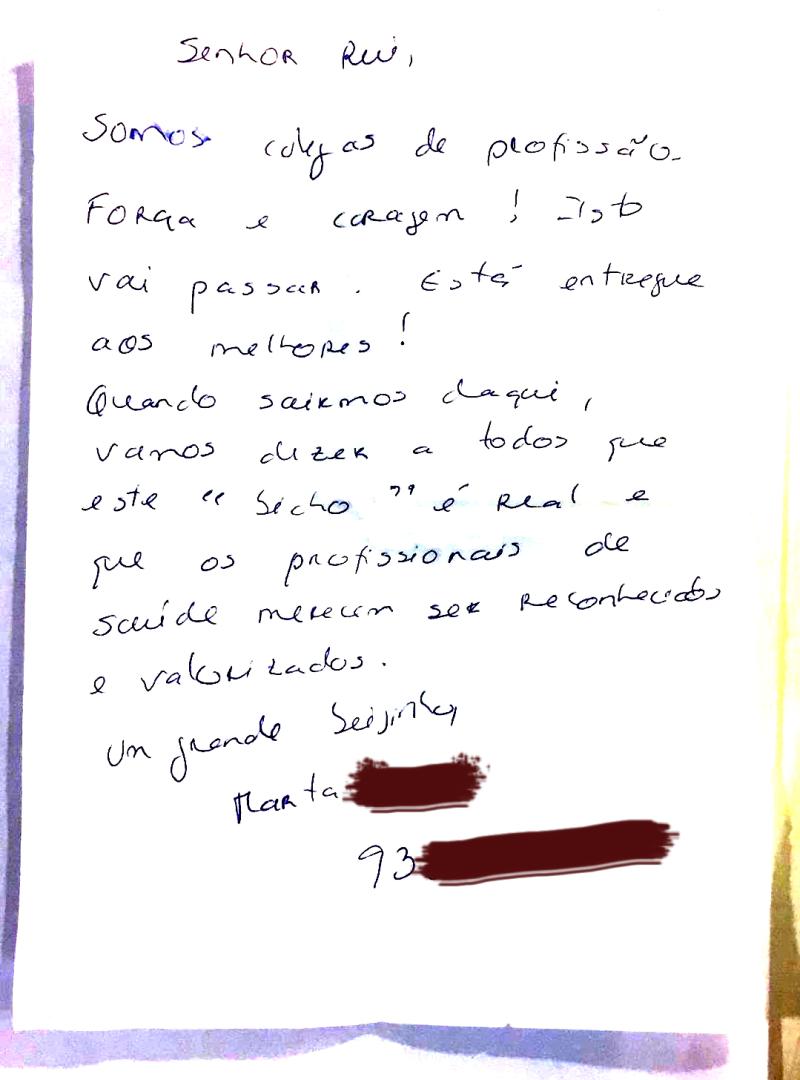 Senhor Rui,
Somos colegas de profissão.
Força e coragem! Isto
vai passar. Está entregue
aos melhores!
Quando sairmos daqui,
vamos dizer a todos que
este "bicho" é real e
que os profissionais de
saúde merecem ser reconhecidos
e valorizados.
Um grande beijinho,
Marta
93